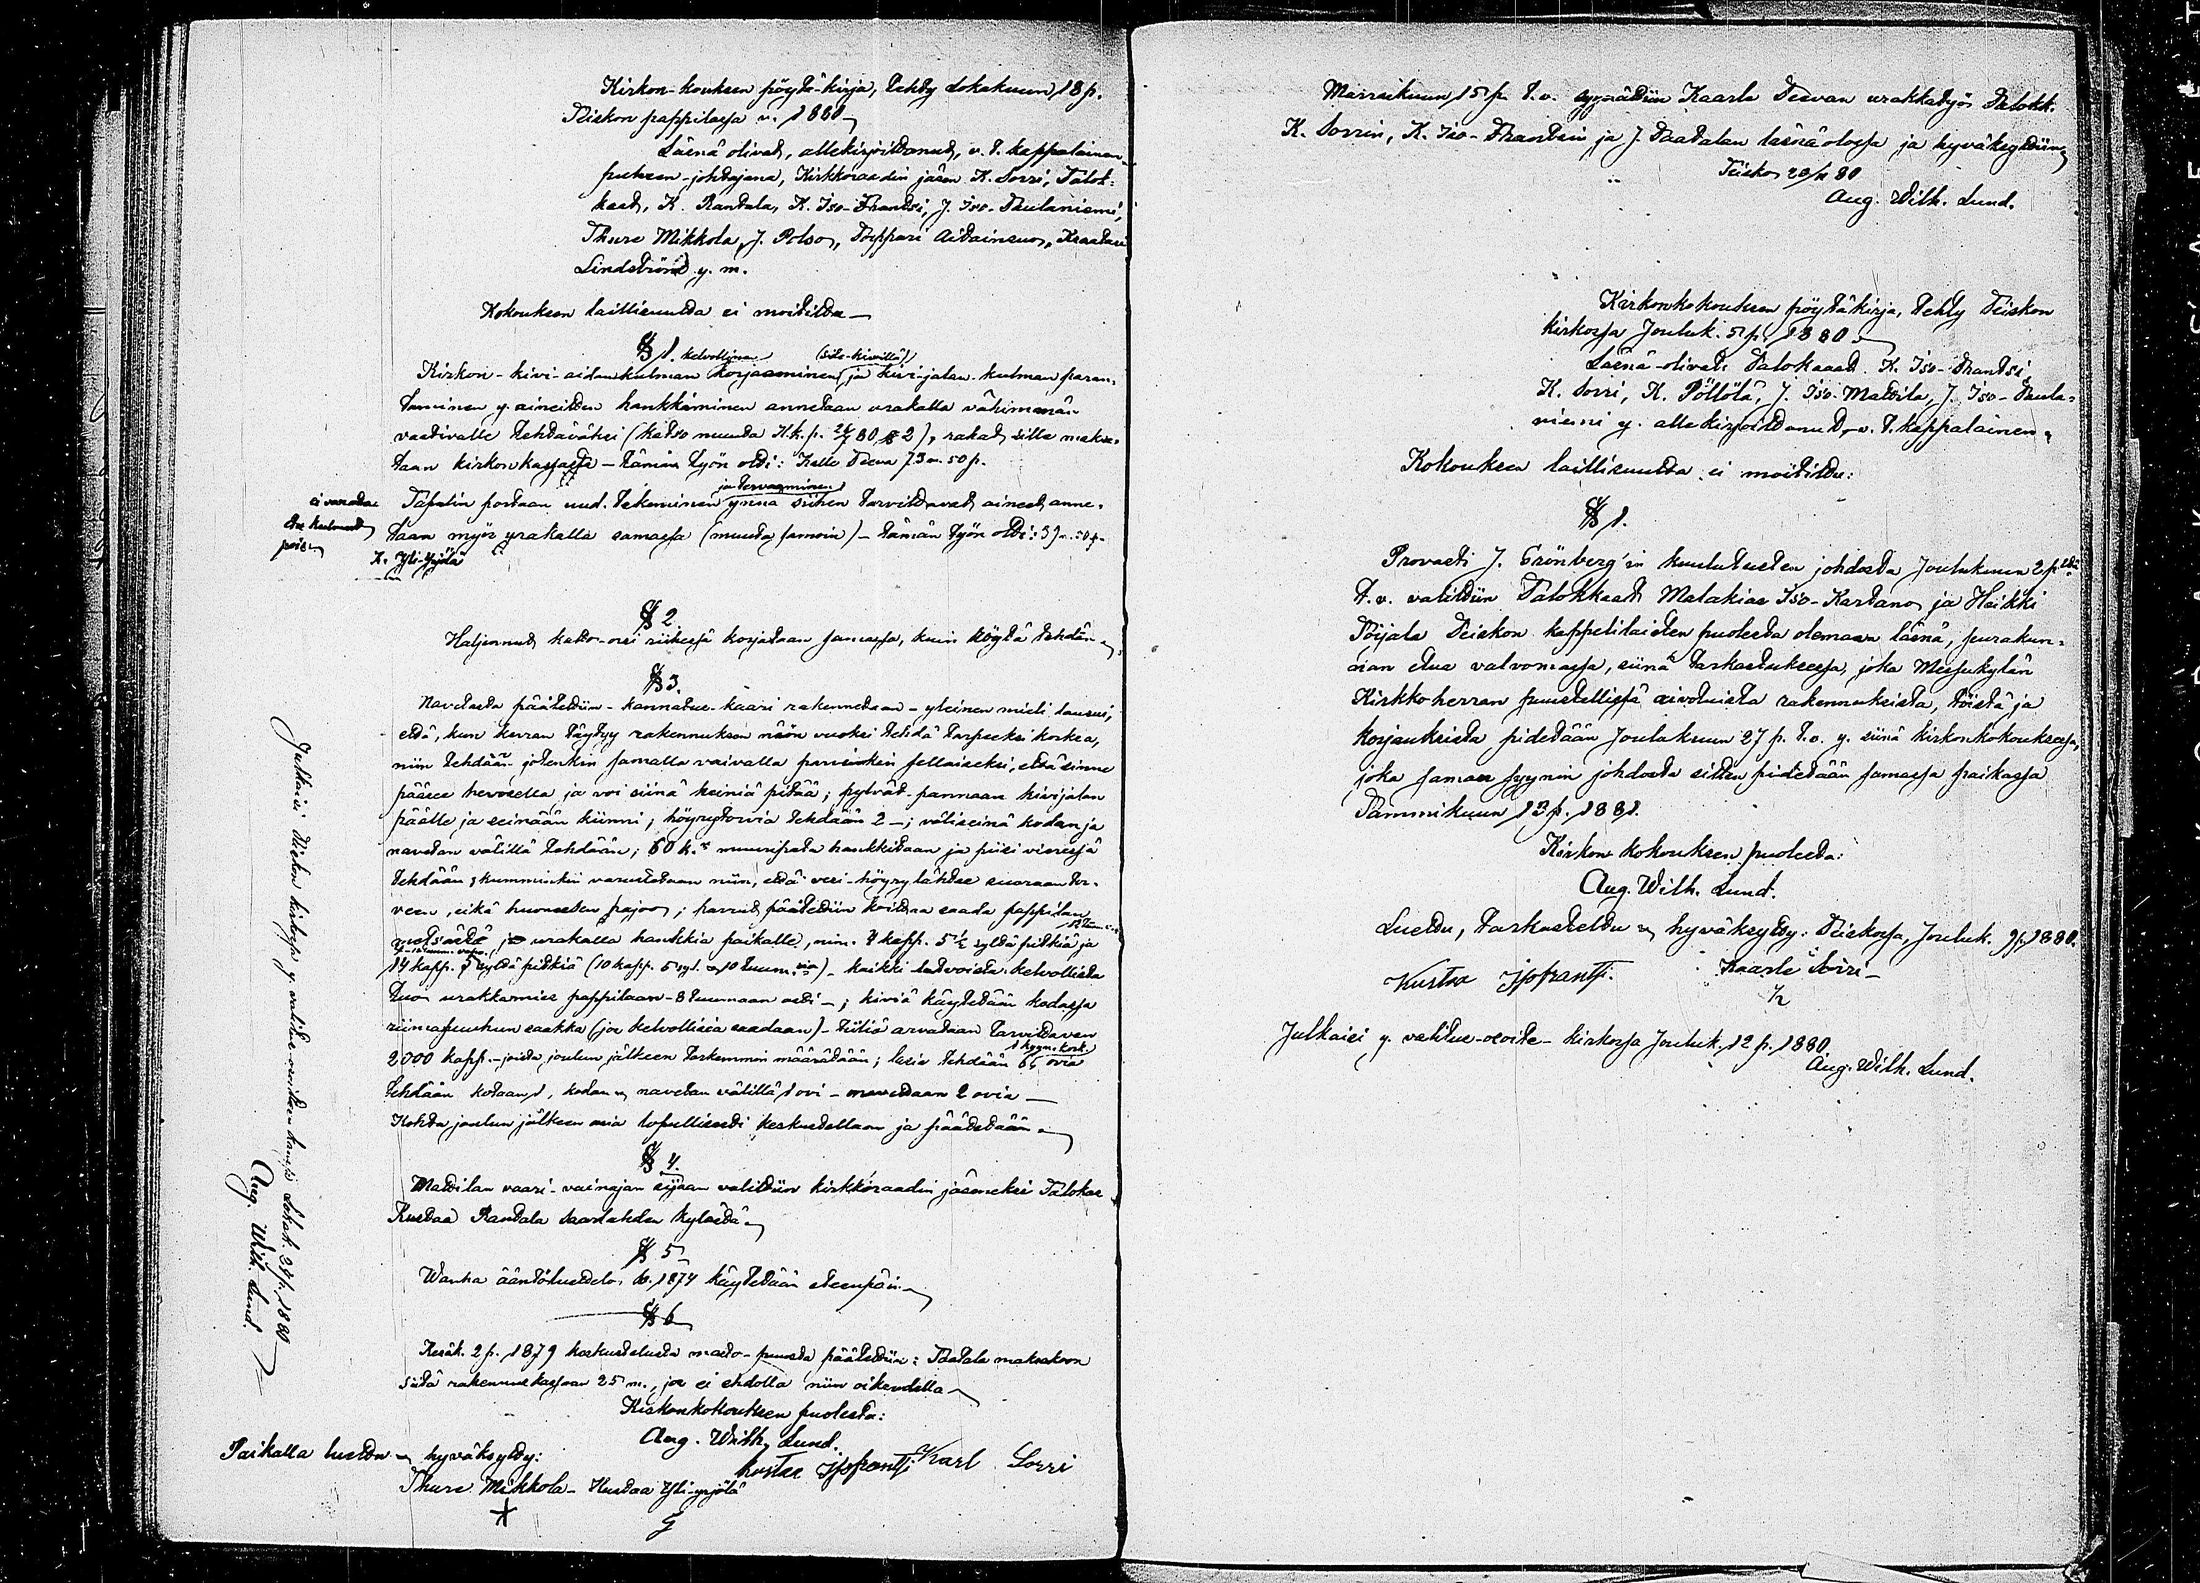 Kirkon-kouksen pöytä-kirja, tehty Lokakuun 18 p.
Teiskon pappilassa v. 1880
Läsnä olivat, allekirjoittanut, v. t. kappalainen
puheen-johtajana, Kirkkoraadin jäsen K. Sorri, Talok:
kaat, K. Rantala, K. Iso-Frantsi, J. Iso-Paulaniemi,
Thure Mikkola, J. Polso, Torppari Aitainsuo, Kraatari
Lindström y. m.
Kokouksen laillisuutta ei moitittu
§ 1. kelvollinen (silo-kivillä)
Kirkon-kivi-aidan kulman korjaaminen, ja kivi-jalan-kulman paran-
taminen y. aineitten hankkiminen annetaan urakalla vähimmän
vaativalle tehtäväksi (katso muuta K.k.p. 26/7 80 § 2), rahat sille makse-
taan kirkonkassasta - tämän työn otti: Kalle Teeva 73 m. 50 p.
ja tervaaminen
Tapulin portaan uud. tekeminen ynnä siihen tarvittavat aineet anne-
taan myös urakalla samassa (muuta samoin) - tämän työn otti: 39 m. 50 p.
K. Yli-Yrjölä
ei varata
pois
§ 2
Haljennut katto-orsi riihessä korjataan samassa, kuin köytä tehdän
§ 3.
Navetasta päätettiin - kannatus-kaari rakennetaan - yleinen mieli lausui,
että, kun kerran täytyy rakennuksen näön vuoksi tehdä tarpeeksi korkea,
niin tehdään jotenkin samalla vaivalla parvinkin sellaiseksi, että sinne
pääsee hevosella, ja voi siinä heiniä pitää; pylväät pannaan kivijalan
päälle ja seinään kiinni; höyrytorvia tehdään 2 -; väliseinä kodan ja
navetan välillä tehdään; 60 k.n muuripata hankkitaan ja piisi vieressä
tehdään; kumminkin varustetaan niin, että vesi-höyry lähtee suoraan tor-
veen, eikä huoneeten pajoo; parrut päätettiin koittaa saada pappilan
metsästä ja urakalla hankkia paikalle, nim. 4 kapp. 5 1/2 syltä pitkiä ja
14 kapp. 7 syltä pitkiä (10 kapp. 5 syl. 10 tuum.sia) - kaikki latvoista kelvollista
tuo urakkamies pappilaan - 8 tuumaan asti -; kiviä käytetään kodassa
riimapuuhun saakka (jos kelvollisia saadaan) - tiiliä arvataan tarvittavan
2000 kapp. - joista joulun jälkeen tarkemmin määrätään; lasia tehdään 6, ovia
1 kyyn. kork.
tehdään kotaan 1, kodan navetan välillä 1 ovi - navettaan 2 ovia
Kohta joulun jälkeen asia lopullisesti keskustellaan ja päätetään
§ 4.
Mattilan vaari-vainajan sijaan valittiin kirkkoraadin jäseneksi Talokas
Kustaa Rantala Saarlahden kylästä
§ 5
Wanha ääntöluettelo v. 1874 käytetään eteenpäin
§ 6
Kesäk. 2 p. 1879 keskustelusta masto-puusta päätettiin: Taatala maksakoon
siitä rakennuskassaan 25 m., jos ei ehdolla niin oikeudella
Kirkonkokouksen puolesta:
Aug. Wilh. Lund.
Paikalla luettu hyväksytty:
Kustaa Isofrantsi. Karl Sorri
Thure Mikkola - Kustaa Yli-yrjölä
Julkaisi Teiskon kirkossa y. Lokak. 24 p. 1880
Aug. Wilh. Lund.
Marraskuun 15 p. t. v. syynättiin Kaarle Teevan urakkatyö Talokk.
K. Sorrin, K. Iso-Frantsin ja J. Taatalan läsnäolossa ja hyväksyttiin
Teisko 20/11 80
Aug. Wilh. Lund.
Kirkonkokouksen pöytäkirja, tehty Teiskon
kirkossa Jouluk. 5 p. 1880
Läsnä-olivat: Talokaat. K. Iso-Frantsi
K. Sorri, K. Pöllölä, J. Iso-Mattila, J. Iso-Paula-
niemi y. allekirjoittanut, v. t. kappalainen
Kokouksen laillisuutta ei moitittu:
§ 1.
Provasti J. Grönberg'in kuulutusten johdosta Joulukuun 2 p.ltä
t. v. valittiin Talokkaat Malakias Iso-Kartano ja Heikki
Töijala Teiskon kappelilaisten puolesta olemaan läsnä, seurakun-
nan etua valvomassa, siinä tarkastuksessa, joka Messukylän
Kirkkoherran puustellissa aivotuista rakennuksista, töistä ja
korjauksista pidetään Joulukuun 27 p. t. v. y. siinä kirkonkokouksessa,
joka saman syynin johdosta sitten pidetään samassa paikassa
Tammikuun 13 p. 1881.
Kirkon kokouksen puolesta:
Aug. Wilh. Lund.
Luettu, tarkastettu hyväksytty: Teiskossa, Jouluk. 9 p. 1880.
Kustaa Isofrantsi. Kaarle Sorri
Julkaisi y. valitus-osoite- kirkossa Jouluk. 12 p. 1880
Aug. Wilh. Lund.